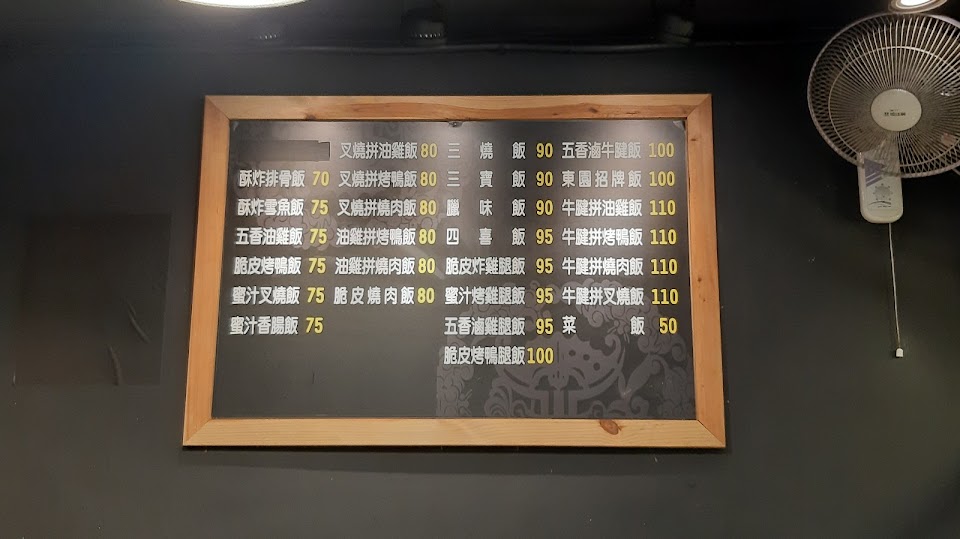 酥炸排骨飯 70
酥炸雪魚飯 75
五香油雞飯 75
脆皮烤鴨飯 75
蜜汁叉燒飯 75
蜜汁香腸飯 75
叉燒拼油雞飯 80
叉燒拼烤鴨飯 80
叉燒拼燒肉飯 80
油雞拼烤鴨飯 80
油雞拼燒肉飯 80
脆皮燒肉飯 80
三燒飯 90
三寶飯 90
臘味飯 90
四喜飯 95
脆皮炸雞腿飯 95
蜜汁烤雞腿飯 95
五香滷雞腿飯 95
脆皮烤鴨腿飯 100
五香滷牛腱飯 100
東園招牌飯 100
牛腱拼油雞飯 110
牛腱拼烤鴨飯 110
牛腱拼燒肉飯 110
牛腱拼叉燒飯 110
菜飯 50